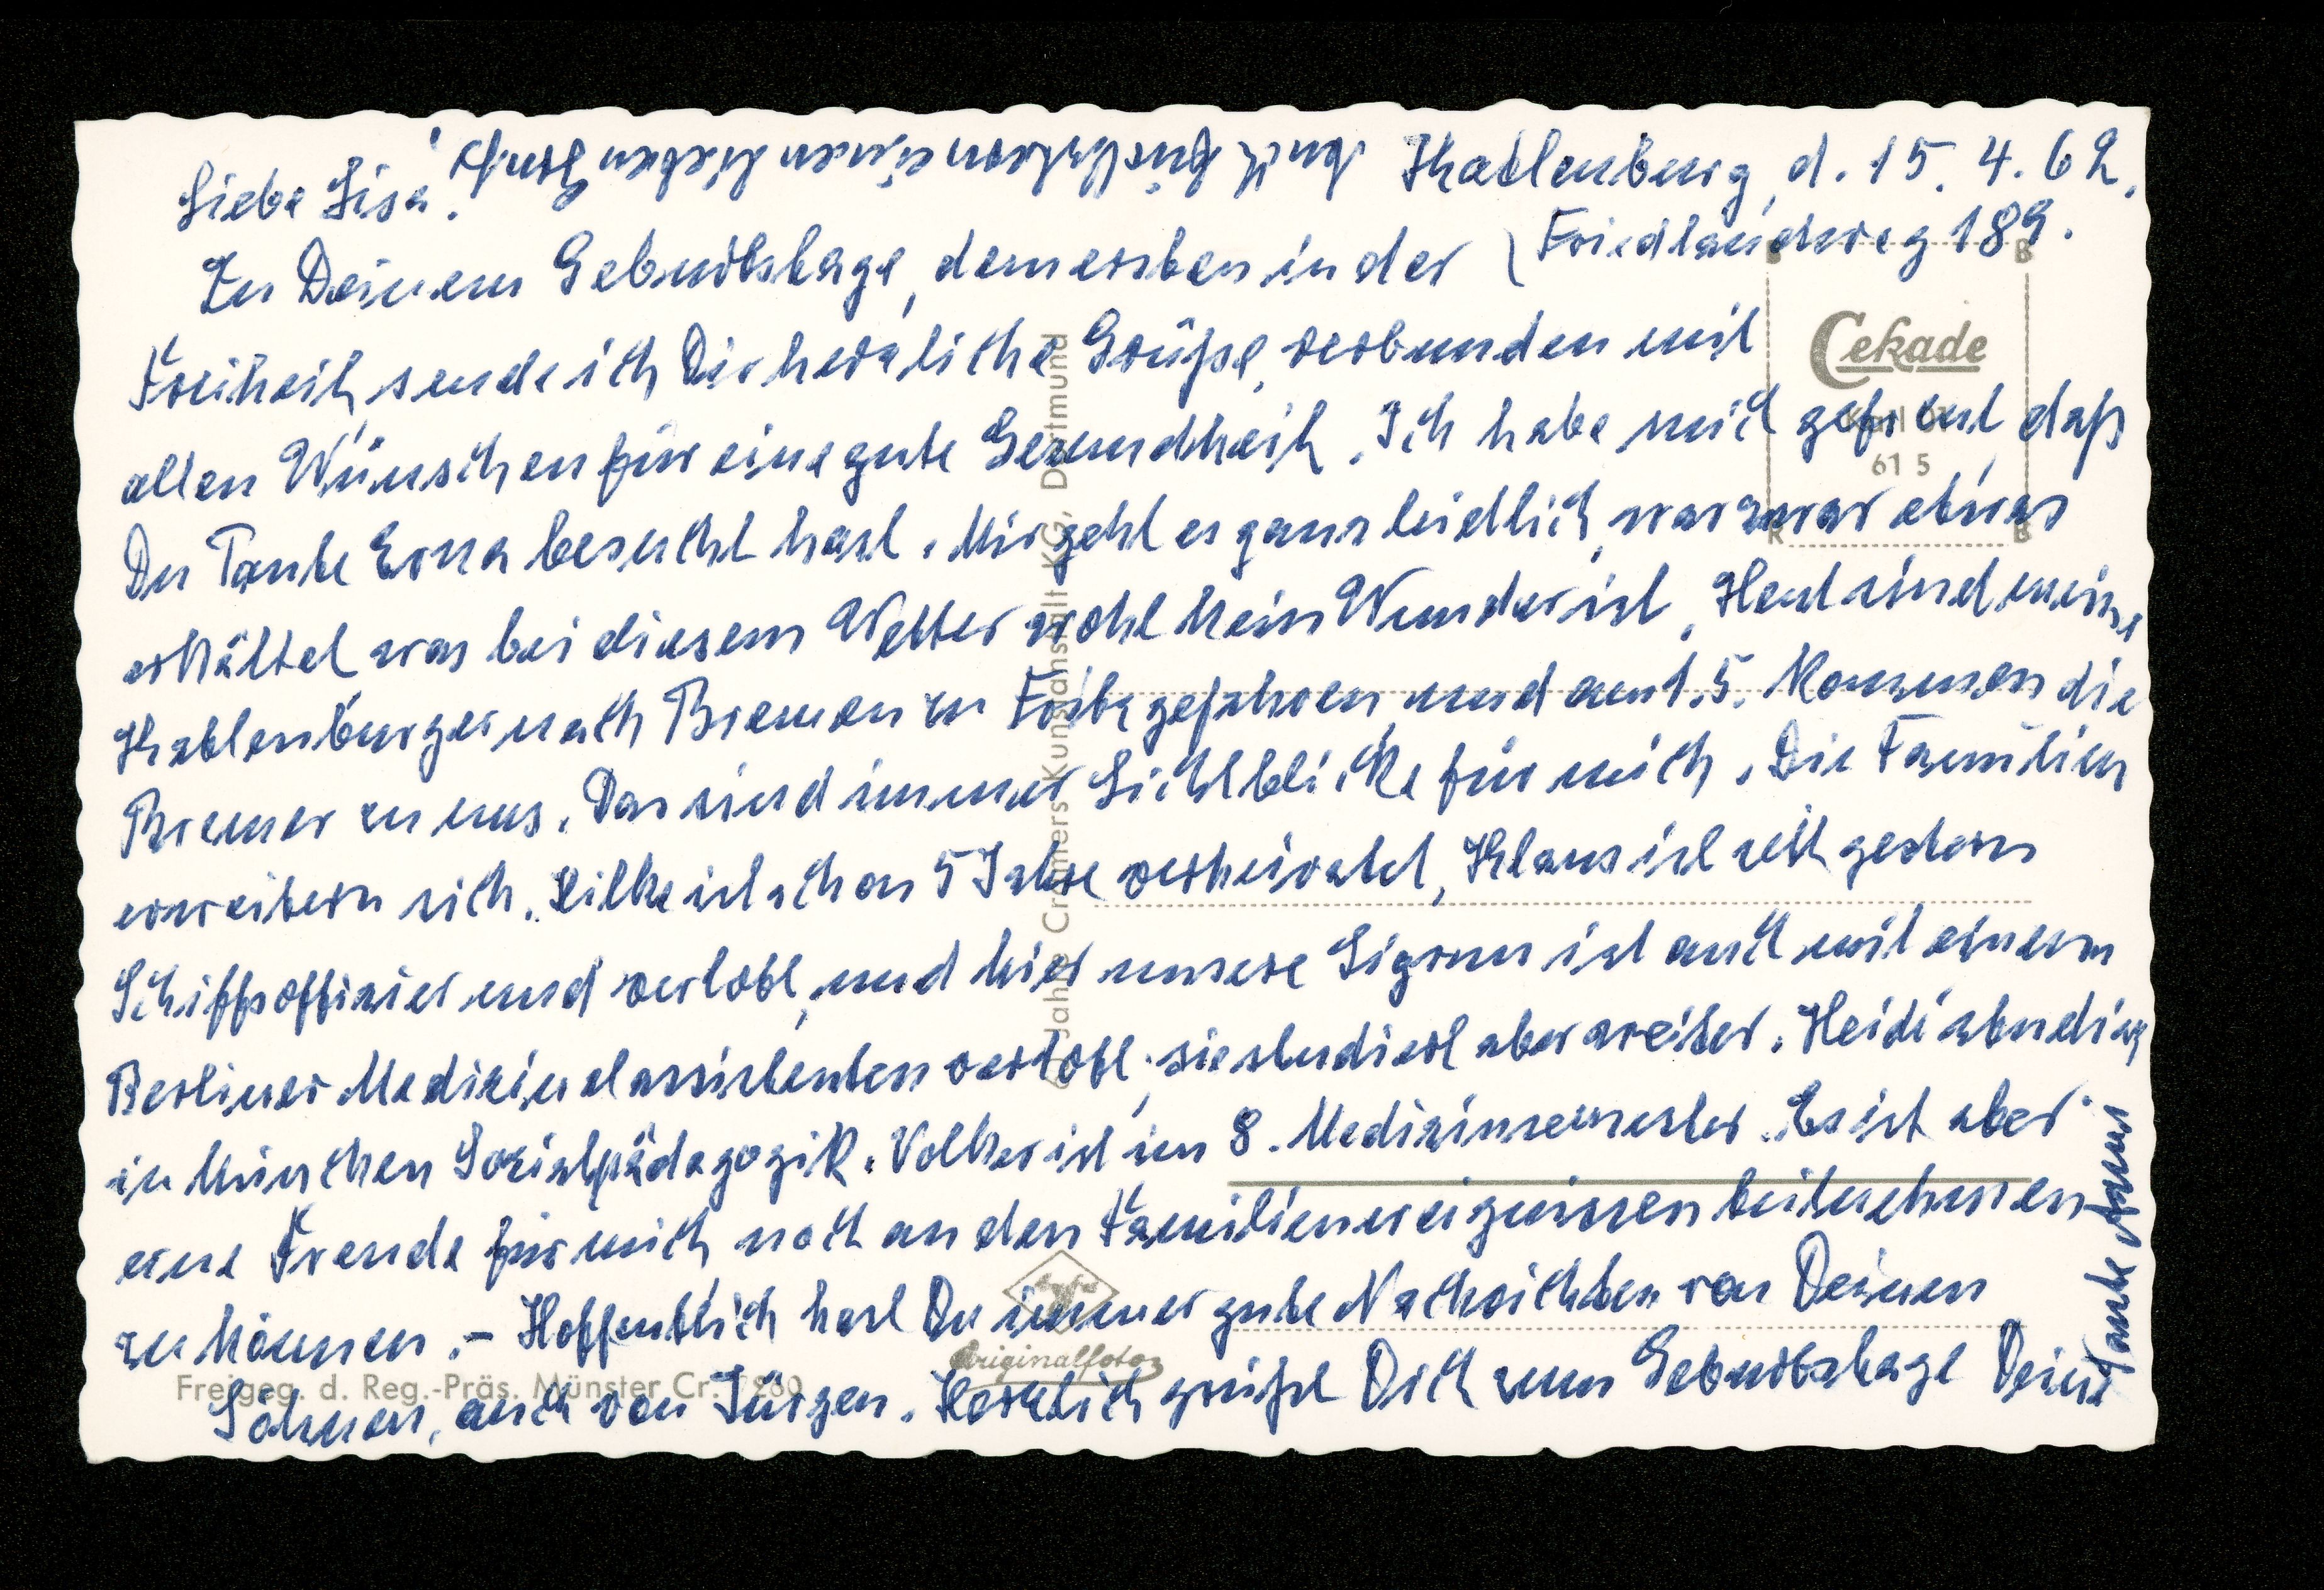 Katlenburg, d. 15. 4. 62.
Friedlandweg 189.
Liebe Lisa!
Zu Deinem Geburtstage, dem ersten in der
Freiheit, sende ich Dir herzliche Grüße, verbunden mit
allen Wünschen für eine gute Gesundheit. Ich habe mich gefreut daß
Du Tante Erna besucht hast. Mir geht es ganz leidlich, war zwar etwas
erkältet was bei diesem Wetter wohl kein Wunder ist. Heut sind meine
Katlenburger nach Bremen zu gefahren, und am 1.5. kommen die
Bremer zu uns. Das sind immer Lichtblicke für mich. Die Familien
erweitern sich. Silke ist schon 5 Jahre verheiratet, Klaus ist seit gestern
Schiffsoffizier und verlobt, und hier unsere Sigrun ist auch mit einem
Berliner Medizinalassistenten verlobt, sie studiert aber weiter. Heidi studiert
in München Sozialpädagogik. Volker ist im 8. Medizinsemester. Es ist aber
eine Freude für mich noch an den Familienereignissen teilnehmen
zu können. – Hoffentlich hast Du immer gute Nachrichten von Deinen
Söhnen, auch von Jürgen. Herzlich grüßt Dich zum Geburtstage Deine
Tante
Cekade
61 5
60 Jahre Cramers Kunstanstalt KG, Dortmund
Agfa
Originalfoto
Freigeg. d. Reg.-Präs. Münster Cr.